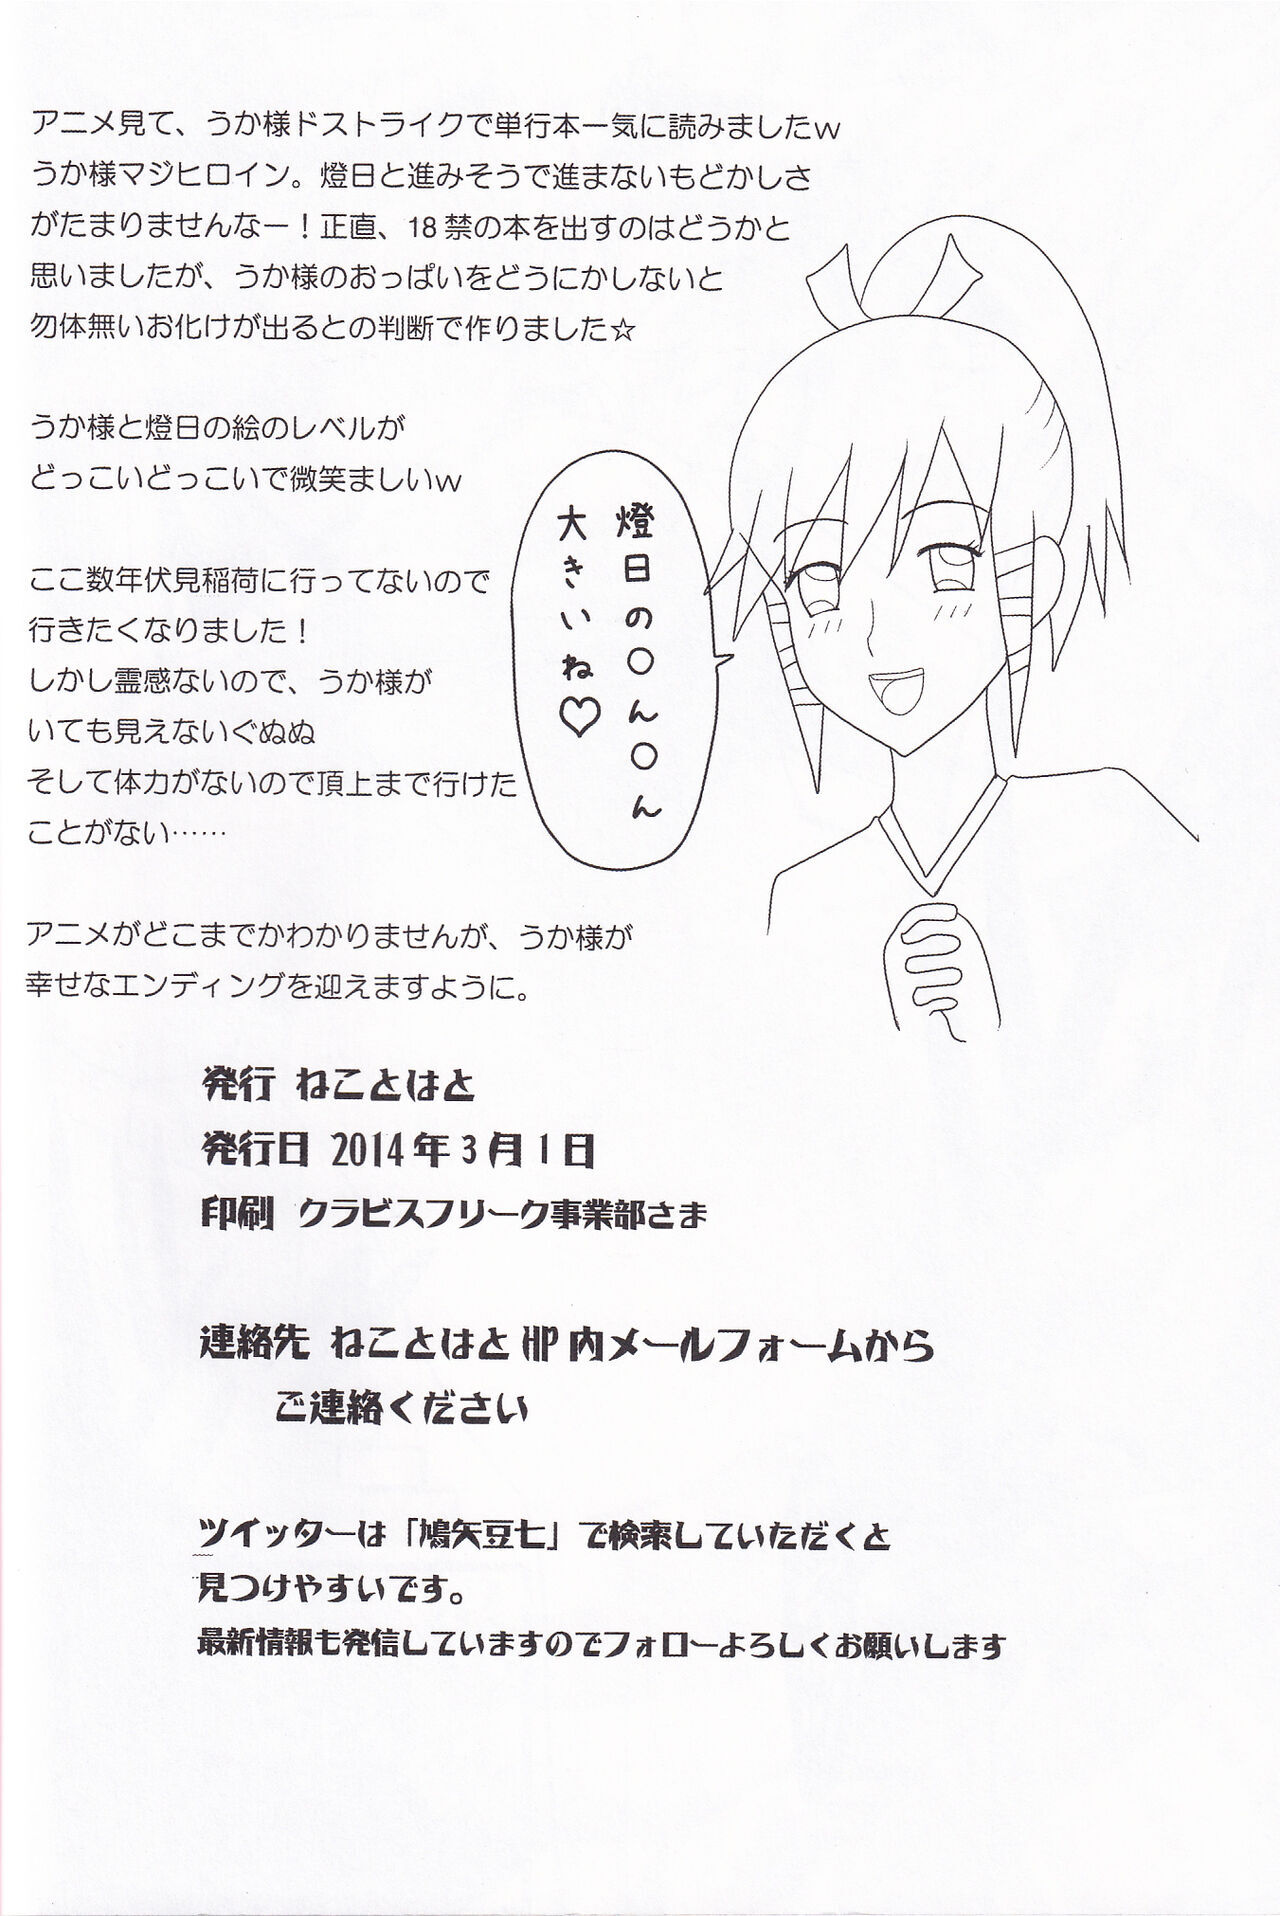 アニメ見て、うか様ドストライクで単行本一気に読みましたｗ
うか様マジヒロイン。燈日と進みそうで進まないもどかしさ
がたまりませんなー！正直、18 禁の本を出すのはどうかと
思いましたが、うか様のおっぱいをどうにかしないと
勿体無いお化けが出るとの判断で作りました☆
うか様と燈日の絵のレベルが
どっこいどっこいで微笑ましいｗ
燈日の〇ん〇ん
大きいね♡
ここ数年伏見稲荷に行ってないので
行きたくなりました！
しかし霊感ないので、うか様が
いても見えないぐぬぬ
そして体力がないので頂上まで行けた
ことがない……
アニメがどこまでかわかりませんが、うか様が
幸せなエンディングを迎えますように。
発行 ねことはと
発行日 2014 年 3 月 1 日
印刷 クラビスフリーク事業部さま
連絡先 ねことはと HP 内メールフォームから
ご連絡ください
ツイッターは「鳩矢豆七」で検索していただくと
見つけやすいです。
最新情報も発信していますのでフォローよろしくお願いします